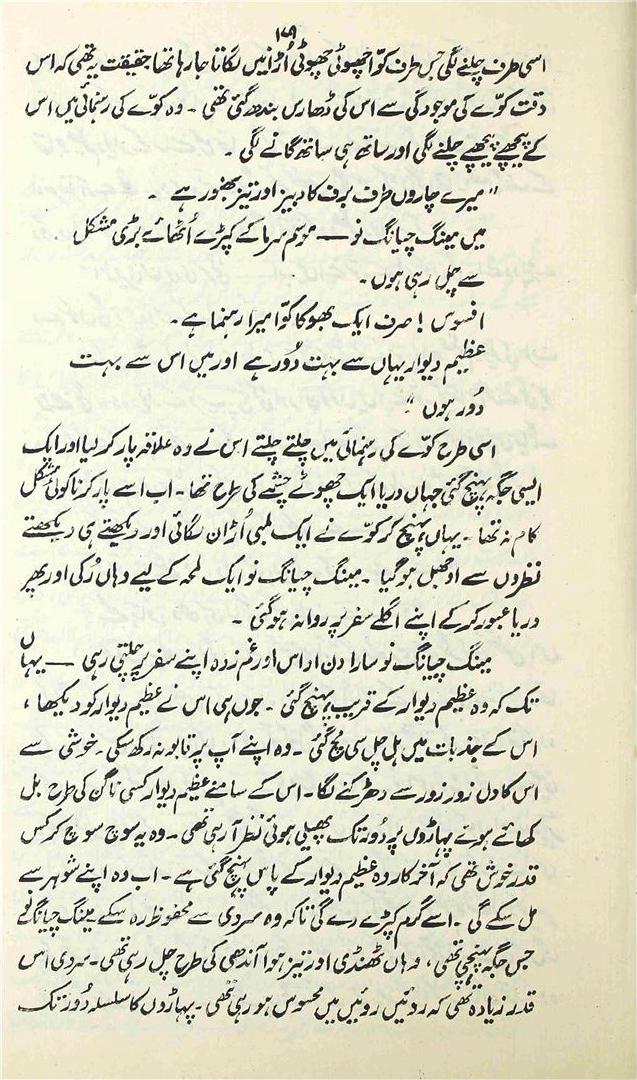 ۱۷۹
اسی طرف چلنے لگی جس طرف کوّا چھوٹی چھوٹی اُڑانیں لگاتا جا رہا تھا حقیقت یہ تھی کہ اس
وقت کوّے کی موجودگی سے اس کی ڈھارس بندھ گئی تھی ۔ وہ کوّے کی رہنمائی میں اس
کے پیچھے پیچھے چلنے لگی اور ساتھ ہی ساتھ گانے لگی ۔
"میرے چاروں طرف برف کا دبیز اور تیز بھنور ہے ۔
میں مینگ چیانگ نو — موسم سرما کے کپڑے اُٹھائے بڑی مشکل
سے چل رہی ہوں ۔
افسوس ! صرف ایک بھوکا کوّا میرا رہنما ہے ۔
عظیم دیوار یہاں سے بہت دُور ہے اور میں اس سے بہت
دُور ہوں "
اسی طرح کوّے کی رہنمائی میں چلتے چلتے اس نے وہ علاقہ پار کر لیا اور ایک
ایسی جگہ پہنچ گئی جہاں دریا ایک چھوٹے چشمے کی طرح تھا ۔ اب اسے پار کرنا کوئی مشکل
کام نہ تھا ۔ یہاں پہنچ کر کوّے نے ایک لمبی اُڑان لگائی اور دیکھتے ہی دیکھتے
نظروں سے اوجھل ہو گیا ۔ مینگ چیانگ نو ایک لمحہ کے لیے وہاں رُکی اور پھر
دریا عبور کر کے اپنے اگلے سفر پہ روانہ ہو گئی ۔
مینگ چیانگ نو سارا دن اداس اور غم زدہ اپنے سفر پر چلتی رہی — یہاں
تک کہ وہ عظیم دیوار کے قریب پہنچ گئی ۔ جوں ہی اس نے عظیم دیوار کو دیکھا ،
اس کے جذبات میں ہل چل سی مچ گئی ۔ وہ اپنے آپ پر قابو نہ رکھ سکی ۔ خوشی سے
اس کا دل زور زور سے دھڑکنے لگا ۔ اس کے سامنے عظیم دیوار کسی ناگن کی طرح بل
کھائے ہوئے پہاڑوں پر دُور تک پھیلی ہوئی نظر آ رہی تھی ۔ وہ یہ سوچ سوچ کر کس
قدر خوش تھی کہ آخر کار وہ عظیم دیوار کے پاس پہنچ گئی ہے ۔ اب وہ اپنے شوہر سے
مل سکے گی ۔ اسے گرم کپڑے دے گی تا کہ وہ سردی سے محفوظ رہ سکے مینگ چیانگ نو
جس جگہ پہنچی تھی ، وہاں ٹھنڈی اور تیز ہوا آندھی کی طرح چل رہی تھی ۔ سردی اس
قدر زیادہ تھی کہ روئیں روئیں میں محسوس ہو رہی تھی ۔ پہاڑوں کا سلسلہ دُور تک